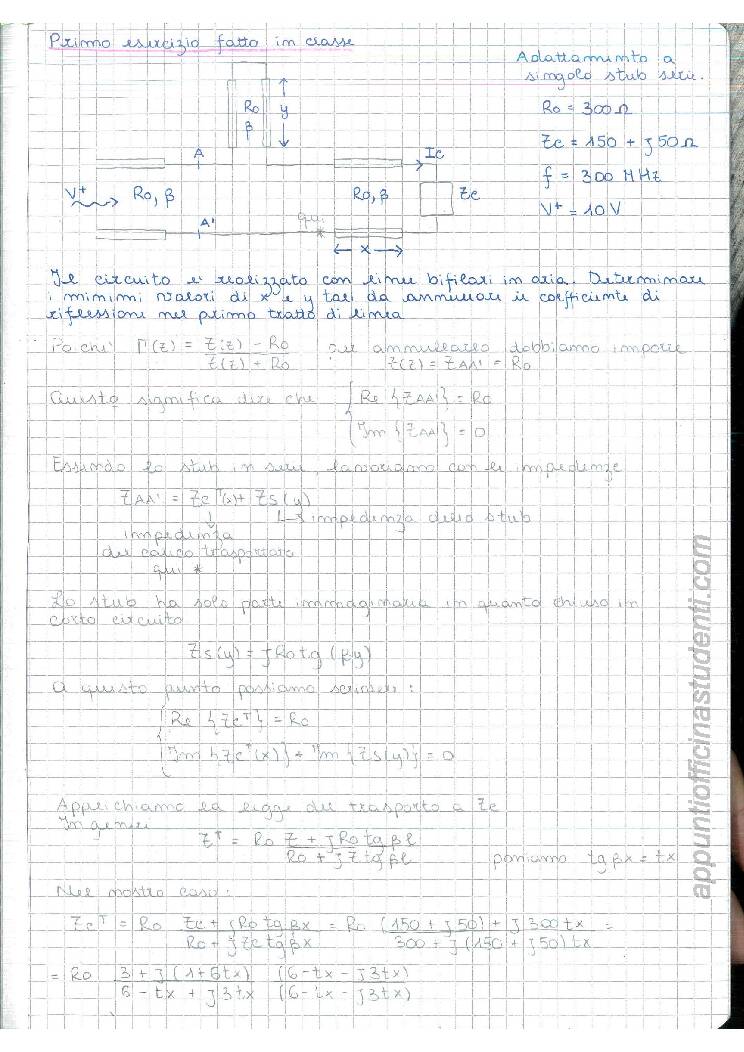 Primo esercizio fatto in classe
Adattamento a
singolo stub serie.
R0 = 300 Ω
Zc = 150 + j50 Ω
f = 300 MHz
V+ = 10 V
R0
β
y
A
Ic
V+
R0, β
R0, β
Zc
A'
qui
*
x
Il circuito è realizzato con linee bifilari in aria. Determinare
i minimi valori di x e y tali da annullare il coefficiente di
riflessione nel primo tratto di linea
Poichè Γ(z) = Z(z) - R0 / Z(z) + R0 per annullarlo dobbiamo imporre
Z(z) = ZAA' = R0
Questo significa dire che { Re {ZAA'} = R0
Im {ZAA'} = 0
Essendo lo stub in serie, lavoriamo con le impedenze
ZAA' = Zc^T(x) + Zs(y)
↓ ↳ impedenza dello stub
impedenza
del carico trasportata
qui *
Lo stub ha solo parte immaginaria in quanto chiuso in
corto circuito
Zs(y) = jR0 tg (βy)
A questo punto possiamo scrivere :
{ Re {Zc^T} = R0
Im {Zc^T(x)} + Im {Zs(y)} = 0
Applichiamo la legge del trasporto a Zc
In genere
Z^T = R0 Z + jR0 tg βl / R0 + jZ tg βl poniamo tg βx = tx
Nel nostro caso :
Zc^T = R0 Zc + jR0 tg βx / R0 + jZc tg βx = R0 (150 + j50) + j300tx / 300 + j(150 + j50)tx =
= R0 3 + j(1+6tx) / 6 - tx + j3tx (6 - tx - j3tx) / (6 - tx - j3tx)
appuntiofficinastudenti.com